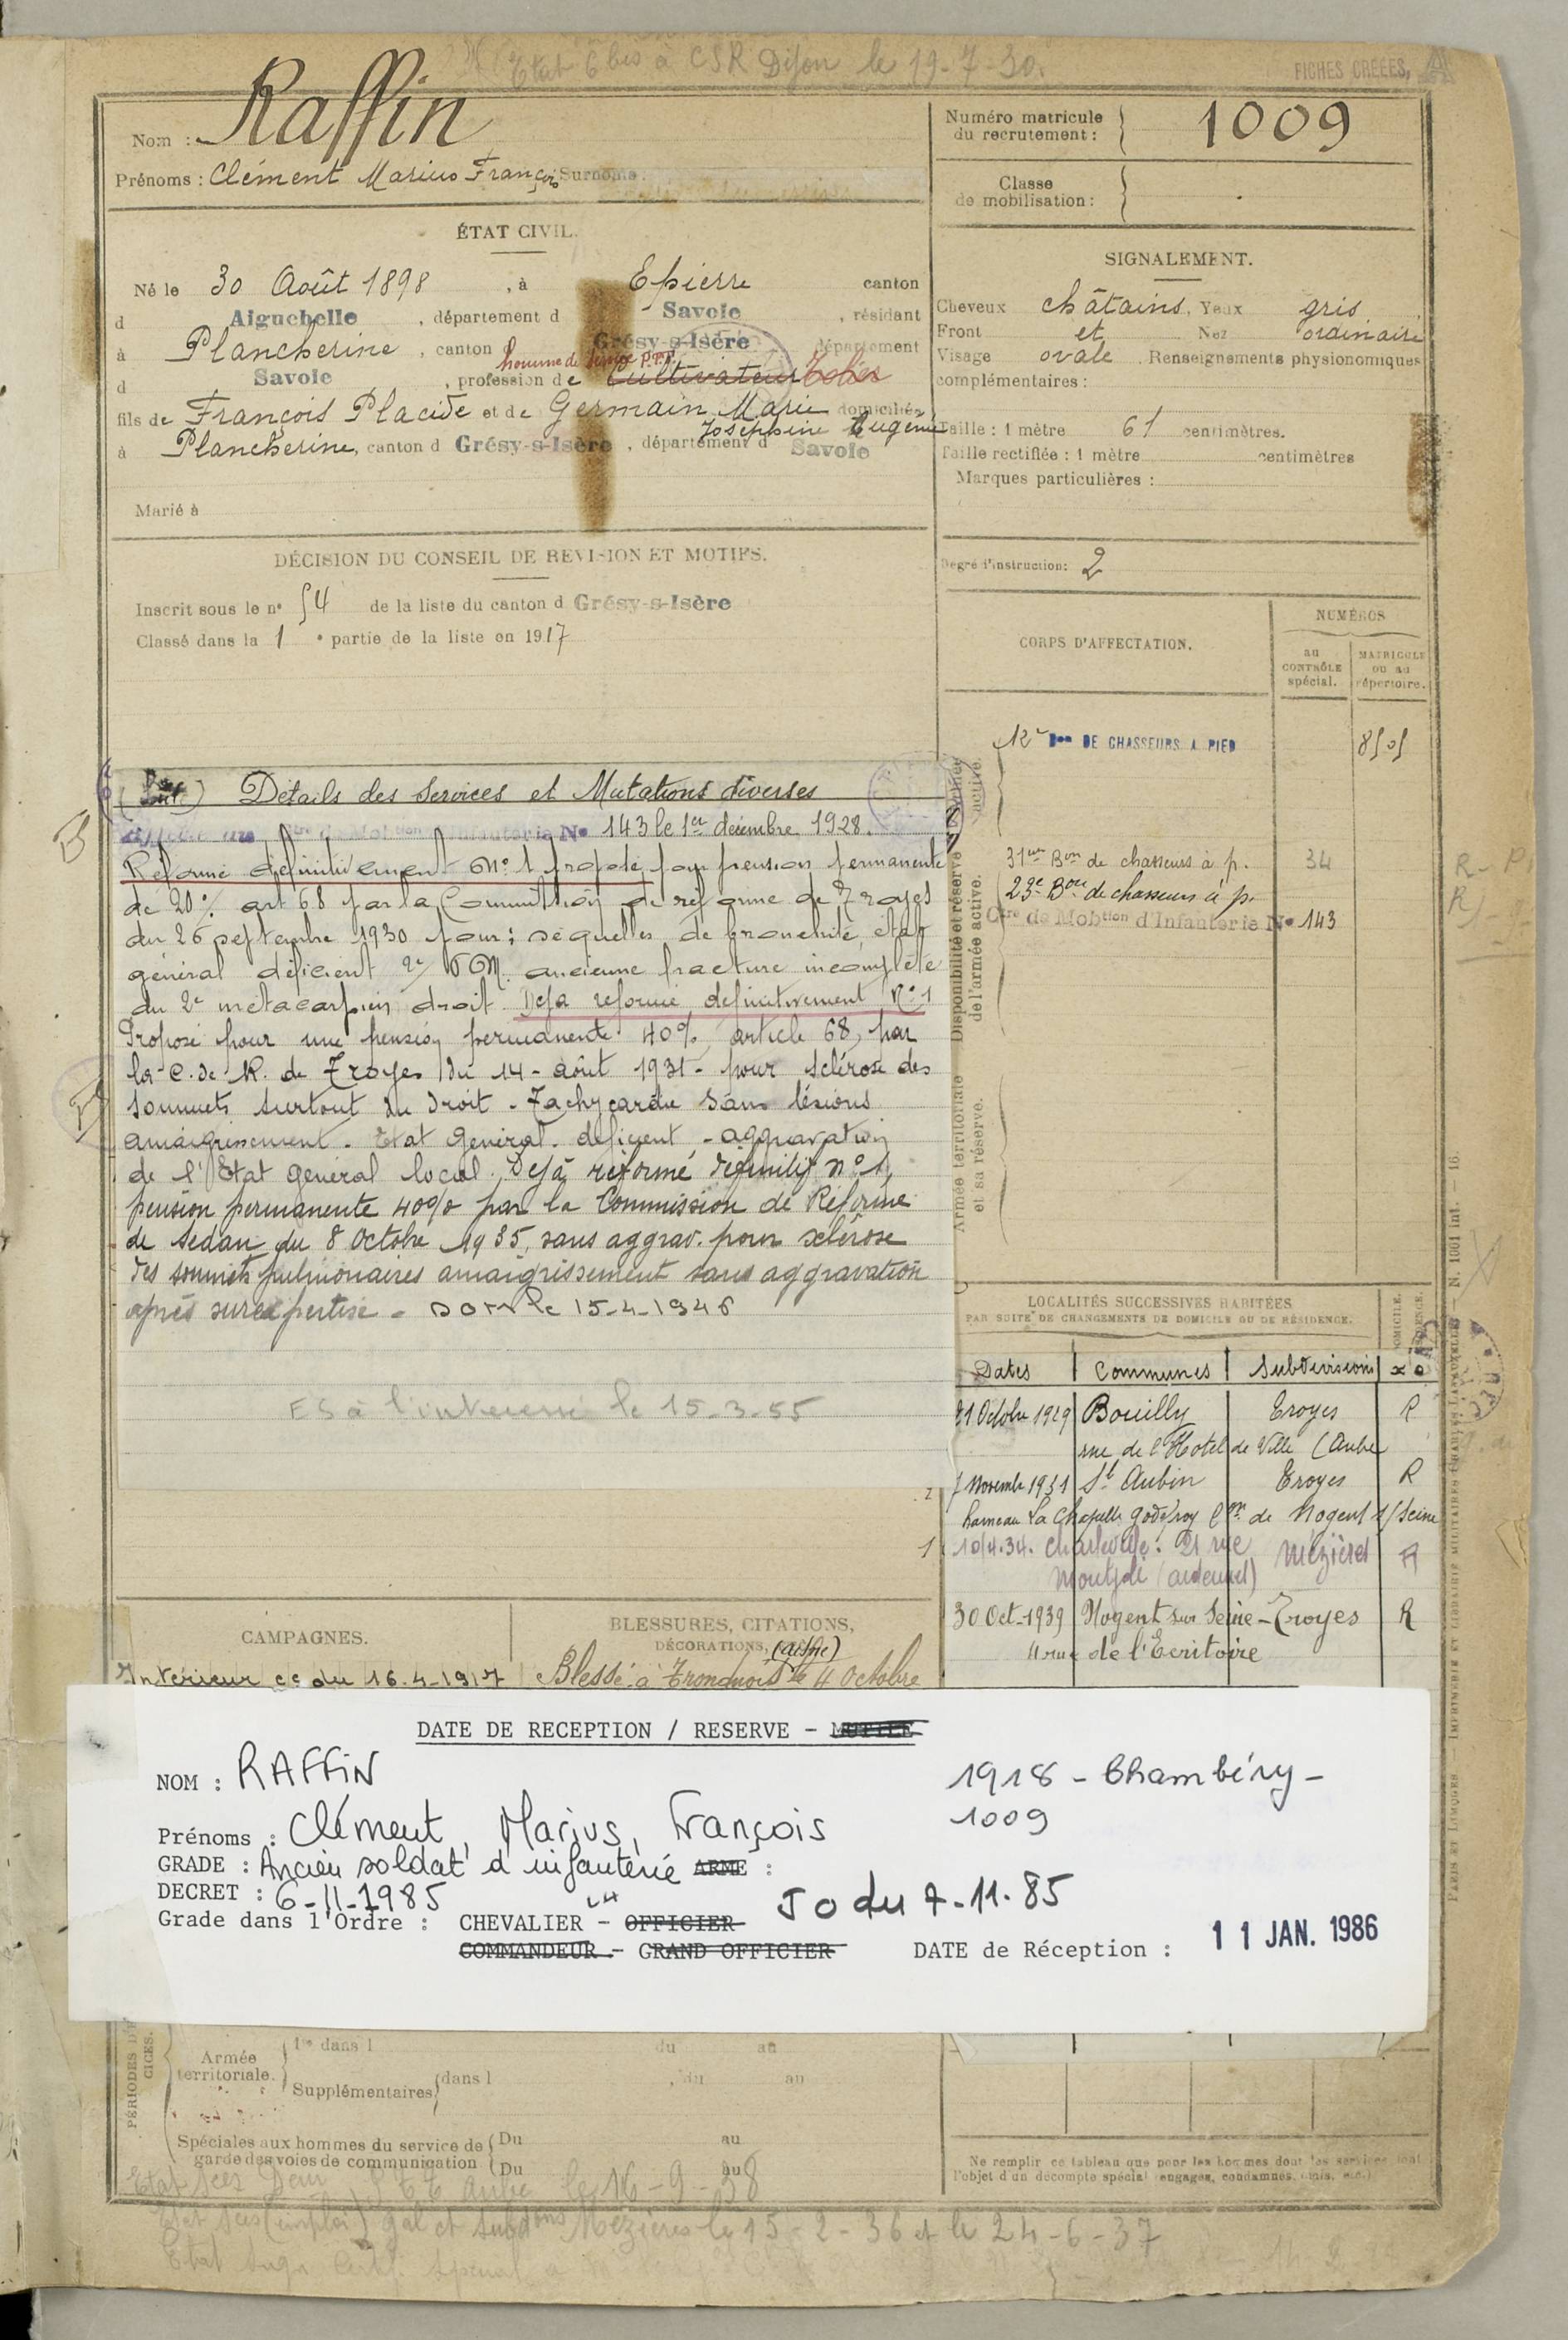 Etat 6 bis à CSR Dijon le 19-7-30.
FICHES CRÉÉES,
Nom : Raffin
Prénoms : Clément Marius François Surnoms :
Numéro matricule du recrutement : 1009
Classe de mobilisation :
ÉTAT CIVIL.
Né le 30 Août 1898, à Epierre canton
d Aiguebelle, département d Savoie, résidant
à Plancherine, canton d Grésy-s-Isère département
homme de
d Savoie, profession de Cultivateur
fils de François Placide et de Germain Marie domiciliés
Joséphine Eugénie
à Plancherine, canton d Grésy-s-Isère, département d Savoie
Marié à
SIGNALEMENT.
Cheveux châtains, Yeux gris
Front et Nez ordinaire
Visage ovale. Renseignements physionomiques
complémentaires :
Taille : 1 mètre 61 centimètres.
Taille rectifiée : 1 mètre centimètres
Marques particulières :
Degré d'instruction : 2
DÉCISION DU CONSEIL DE REVISION ET MOTIFS.
Inscrit sous le n° 54 de la liste du canton d Grésy-s-Isère
Classé dans la 1e partie de la liste en 1917
CORPS D'AFFECTATION.
NUMÉROS
au CONTRÔLE spécial.
MATRICULE ou au répertoire.
12e Bon DE CHASSEURS A PIED 8505
31eme Bon de chasseurs à p. 34
23e Bon de chasseurs à p.
Ctre de Mobtion d'Infanterie N° 143
Disponibilité et réserve de l'armée active.
Armée territoriale et sa réserve.
Détails des Services et Mutations diverses
Infanterie N° 143 le 1er décembre 1928.
Réformé définitivement N° 1 proposé pour pension permanente
de 20% art 68 par la Commission de réforme de Troyes
du 26 septembre 1930 pour : séquelles de bronchite, état
général déficient 2e/ ancienne fracture incomplète
du 2e métacarpien droit. Déjà réformé définitivement N° 1
Proposé pour une pension permanente 40%, article 68, par
la C. de R. de Troyes du 14 - août 1931 - pour sclérose des
sommets surtout du droit - Tachycardie sans lésions
amaigrissement. Etat général. déficient - aggravation
de l'Etat général local. Déjà réformé définitif n° 1,
pension permanente 40% par la Commission de Réforme
de Sedan du 8 Octobre 1935, sans aggrav. pour sclérose
des sommets pulmonaires amaigrissement sans aggravation
après surexpertise - le 15-4-1946
ES à l'intéressé le 15-3-55
LOCALITÉS SUCCESSIVES HABITÉES
PAR SUITE DE CHANGEMENTS DE DOMICILE OU DE RÉSIDENCE.
Dates Communes Subdivisions
21 Octobre 1929 Bouilly Troyes R
rue de l'Hotel de Ville (Aube
7 Novembre 1931 St Aubin Troyes R
hameau La Chapelle Godefroy Cne de Nogent s/Seine
10/4.34. Charleville. 21 rue Mézières R
30 Oct-1939 Nogent sur Seine - Troyes R
4 rue de l'Ecritoire
CAMPAGNES.
Intérieur cc du 16.4-1917
BLESSURES, CITATIONS,
DÉCORATIONS, (Aisne)
Blessé à le 4 Octobre
DATE DE RECEPTION / RESERVE -
NOM : RAFFIN
1918 - Chambéry -
1009
Prénoms : Clément, Marius, François
GRADE : Ancien soldat d'infanterie ARME :
DECRET : 6-11-1985
JO du 7-11-85
Grade dans l'Ordre : CHEVALIER LH - OFFICIER
COMMANDEUR - GRAND OFFICIER
DATE de Réception : 11 JAN. 1986
Armée territoriale.
1re dans l du au
Supplémentaires dans l, du au
Spéciales aux hommes du service de garde des voies de communication
Du au
Du au
Ne remplir ce tableau que pour les hommes dont les services font
l'objet d'un décompte spécial (engagés, condamnés, omis, etc.)
Aube le 16-9-38
Mézières le 15-2-36 et le 24-6-37
N. 1001 Int. - 16.